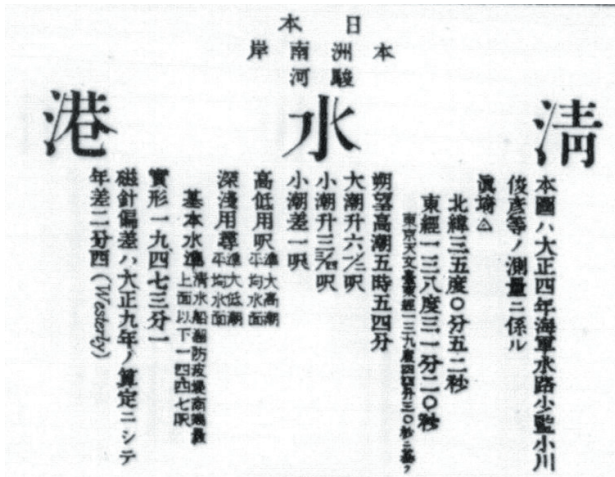 日本
本洲南岸
駿河
淸水港
本圖ハ大正四年海軍水路少監小川
俊彥等ノ測量ニ係ル
眞埼△
北緯三五度〇分五二秒
東經一三八度三一分二〇秒
東京天文臺東經一三九度四四分三〇秒ニ基ク
朔望高潮五時五四分
大潮升六½呎
小潮升三¾呎
小潮差一呎
高低用呎 準大高潮
平均水面
深淺用尋 準大低潮
平均水面
基本水準 淸水船溜防波堤南端
上面以下一四四七呎
實形一九四七三分一
磁針偏差ハ大正九年ノ算定ニシテ
年差二分四(Westerly)